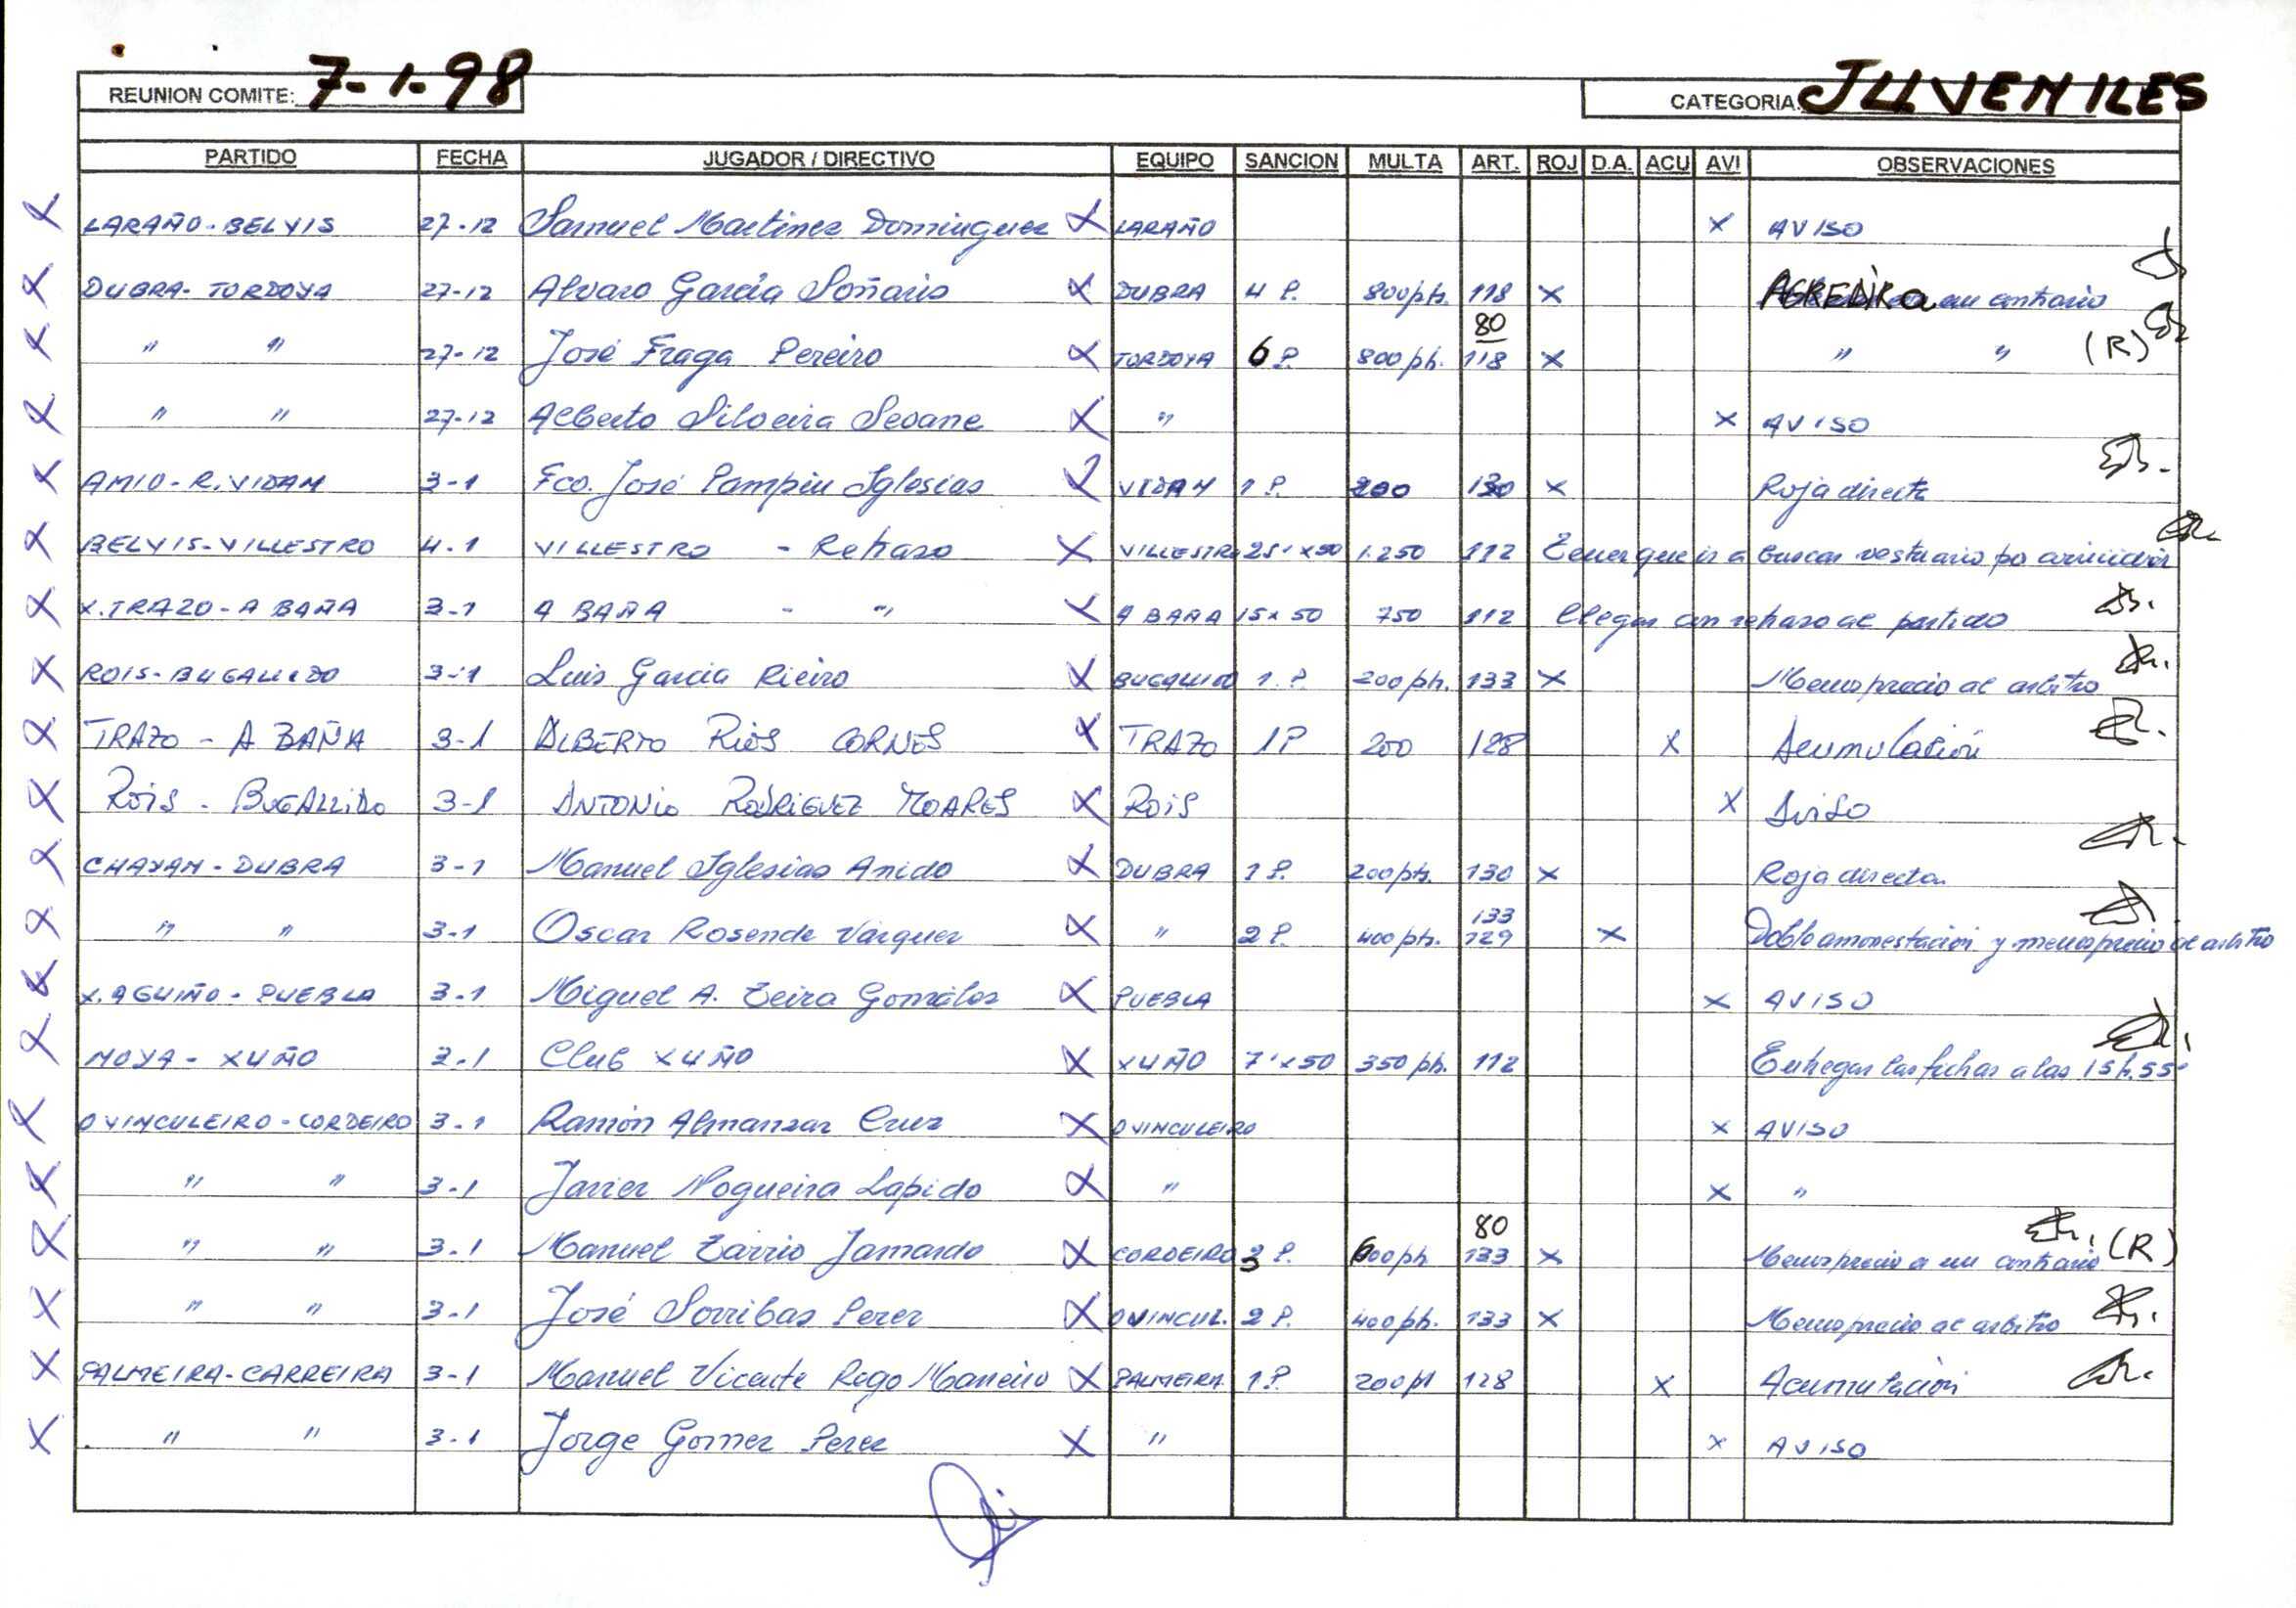 REUNION COMITE: 7-1-98 CATEGORIA: JUVENILES
PARTIDO FECHA JUGADOR / DIRECTIVO EQUIPO SANCION MULTA ART. ROJ D.A. ACU AVI OBSERVACIONES
X LARAÑO-BELVIS 27-12 Samuel Martinez Dominguez X LARAÑO X AVISO
X DUBRA-TORDOYA 27-12 Alvaro García Soñaris X DUBRA 4 P. 800 pts. 118 X AGREDIR a un contrario
80
X " " 27-12 José Fraga Pereiro X TORDOYA 6 P. 800 pts. 118 X " " (R)
X " " 27-12 Alberto Silveira Seoane X " X AVISO
X AMIO-R.VIDAN 3-1 Fco. José Pampin Iglesias X VIDAN 1 P. 200 130 X Roja directa
X BELVIS-VILLESTRO 4-1 VILLESTRO - Retraso X VILLESTRO 25'x50 1.250 112 Tener que ir a buscar vestuario
X X.TRAZO-A BAÑA 3-1 A BAÑA - " X A BAÑA 15x50 750 112 llegar con retraso al partido
X ROIS-BUGALLIDO 3-1 Luis Garcia Rieiro X BUGALLIDO 1 P. 200 pts. 133 X Menosprecio al arbitro
X TRAZO - A BAÑA 3-1 ALBERTO RIOS CORNES X TRAZO 1P 200 128 X Acumulación
X ROIS - BUGALLIDO 3-1 ANTONIO RODRIGUEZ MOARES X ROIS X AVISO
X CHAYAN-DUBRA 3-1 Manuel Iglesias Anido X DUBRA 1 P. 200 pts. 130 X Roja directa
133
X " " 3-1 Oscar Rosende Vazquez X " 2 P. 400 pts. 129 X Doble amonestación y menosprecio al arbitro
X X.AGUIÑO-PUEBLA 3-1 Miguel A. Teira González X PUEBLA X AVISO
X NOYA-XUÑO 3-1 Club XUÑO X XUÑO 7'x50 350 pts. 112 Entregar las fichas a las 15h.55'
X O VINCULEIRO-CORDEIRO 3-1 Ramón Almanzar Cruz X O VINCULEIRO X AVISO
X " " 3-1 Javier Nogueira Lapido X " X "
80
X " " 3-1 Manuel Tarrio Jamardo X CORDEIRO 3 P. 600 pts 133 X Menosprecio a un contrario (R)
X " " 3-1 José Sorribas Perez X O VINCUL. 2 P. 400 pts. 133 X Menosprecio al arbitro
X PALMEIRA-CARREIRA 3-1 Manuel Vicente Rego Maneiro X PALMEIRA 1 P. 200 pt 128 X Acumulación
X " " 3-1 Jorge Gomez Perez X " X AVISO